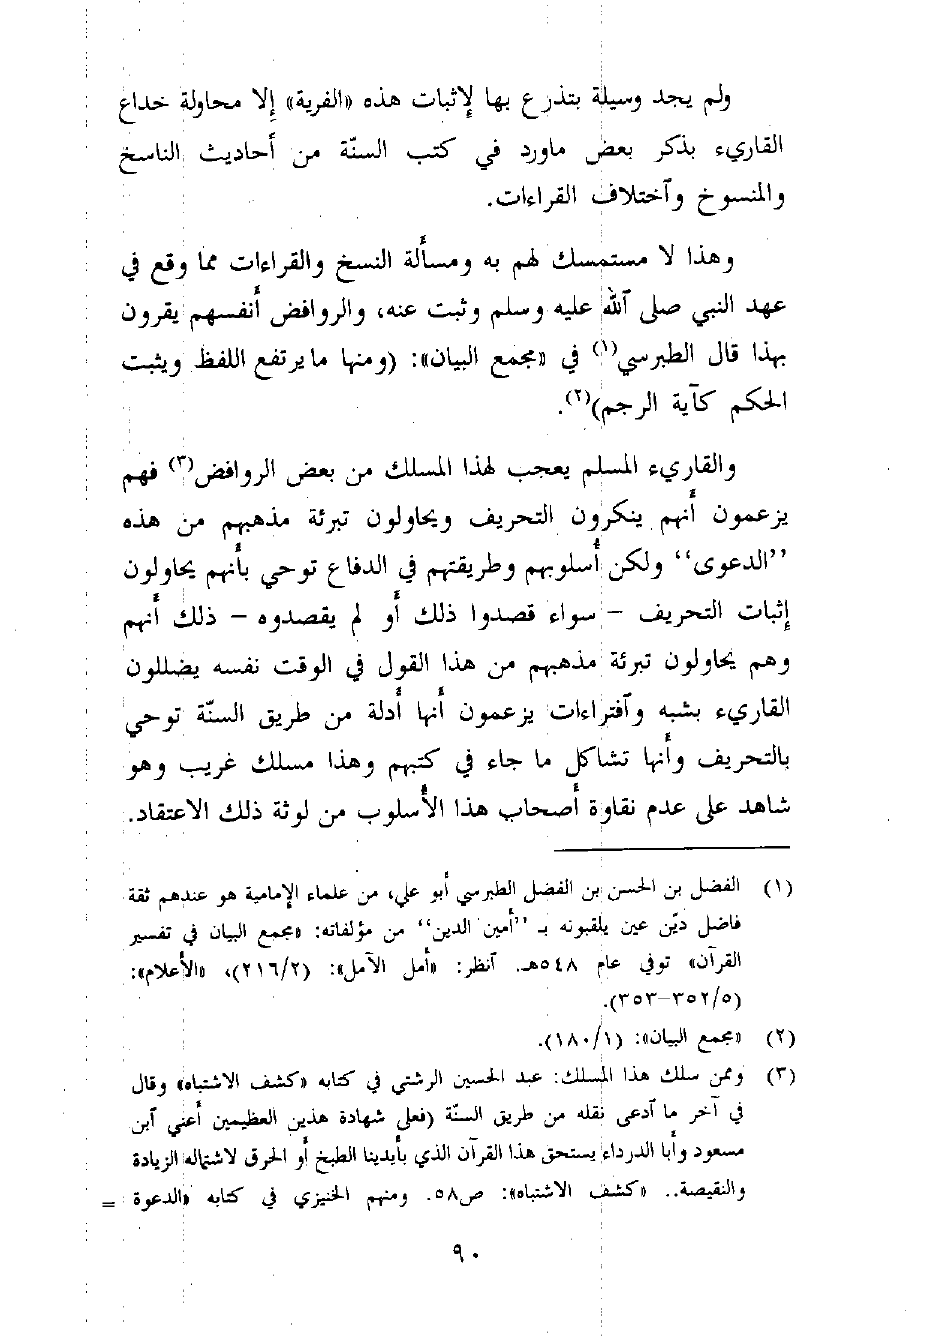 ولم يجد وسيلة بتذرع بها لإثبات هذه «الفرية» إلا محاولة خداع
القاريء بذكر بعض ماورد في كتب السنّة من أحاديث الناسخ
والمنسوخ وآختلاف القراءات.
وهذا لا مستمسك لهم به ومسألة النسخ والقراءات مما وقع في
عهد النبي صلى آلله عليه وسلم وثبت عنه، والروافض أنفسهم يقرون
بهذا قال الطبرسي(١) في «مجمع البيان»: (ومنها مايرتفع اللفظ ويثبت
الحكم كآية الرجم)(٢).
والقاريء المسلم يعجب لهذا المسلك من بعض الروافض(٣) فهم
يزعمون أنهم ينكرون التحريف ويحاولون تبرئة مذهبهم من هذه
”الدعوى“ ولكن أسلوبهم وطريقتهم في الدفاع توحي بأنهم يحاولون
إثبات التحريف – سواء قصدوا ذلك أو لم يقصدوه – ذلك أنهم
وهم يحاولون تبرئة مذهبهم من هذا القول في الوقت نفسه يضللون
القاريء بشبه وآفتراءات يزعمون أنها أدلة من طريق السنّة توحي
بالتحريف وأنها تشاكل ما جاء في كتبهم وهذا مسلك غريب وهو
شاهد على عدم نقاوة أصحاب هذا الأسلوب من لوثة ذلك الاعتقاد.
(١) الفضل بن الحسن بن الفضل الطبرسي أبو علي، من علماء الإمامية هو عندهم ثقة
فاضل ديّن عين يلقبونه بـ ”أمين الدين“ من مؤلفاته: «مجمع البيان في تفسير
القرآن» توفي عام ٥٤٨هـ. آنظر: «أمل الآمل»: (٢١٦/٢)، «الأعلام»:
(٣٥٢/٥–٣٥٣).
(٢) «مجمع البيان»: (١٨٠/١).
(٣) وممن سلك هذا المسلك: عبد الحسين الرشتي في كتابه «كشف الاشتباه» وقال
في آخر ما آدعى نقله من طريق السنّة (فعلى شهادة هذين العظيمين أعني آبن
مسعود وأبا الدرداء يستحق هذا القرآن الذي بأيدينا الطبخ أو الحرق لاشتماله الزيادة
والنقيصة.. «كشف الاشتباه»: ص٥٨. ومنهم الخنيزي في كتابه «الدعوة =
٩٠